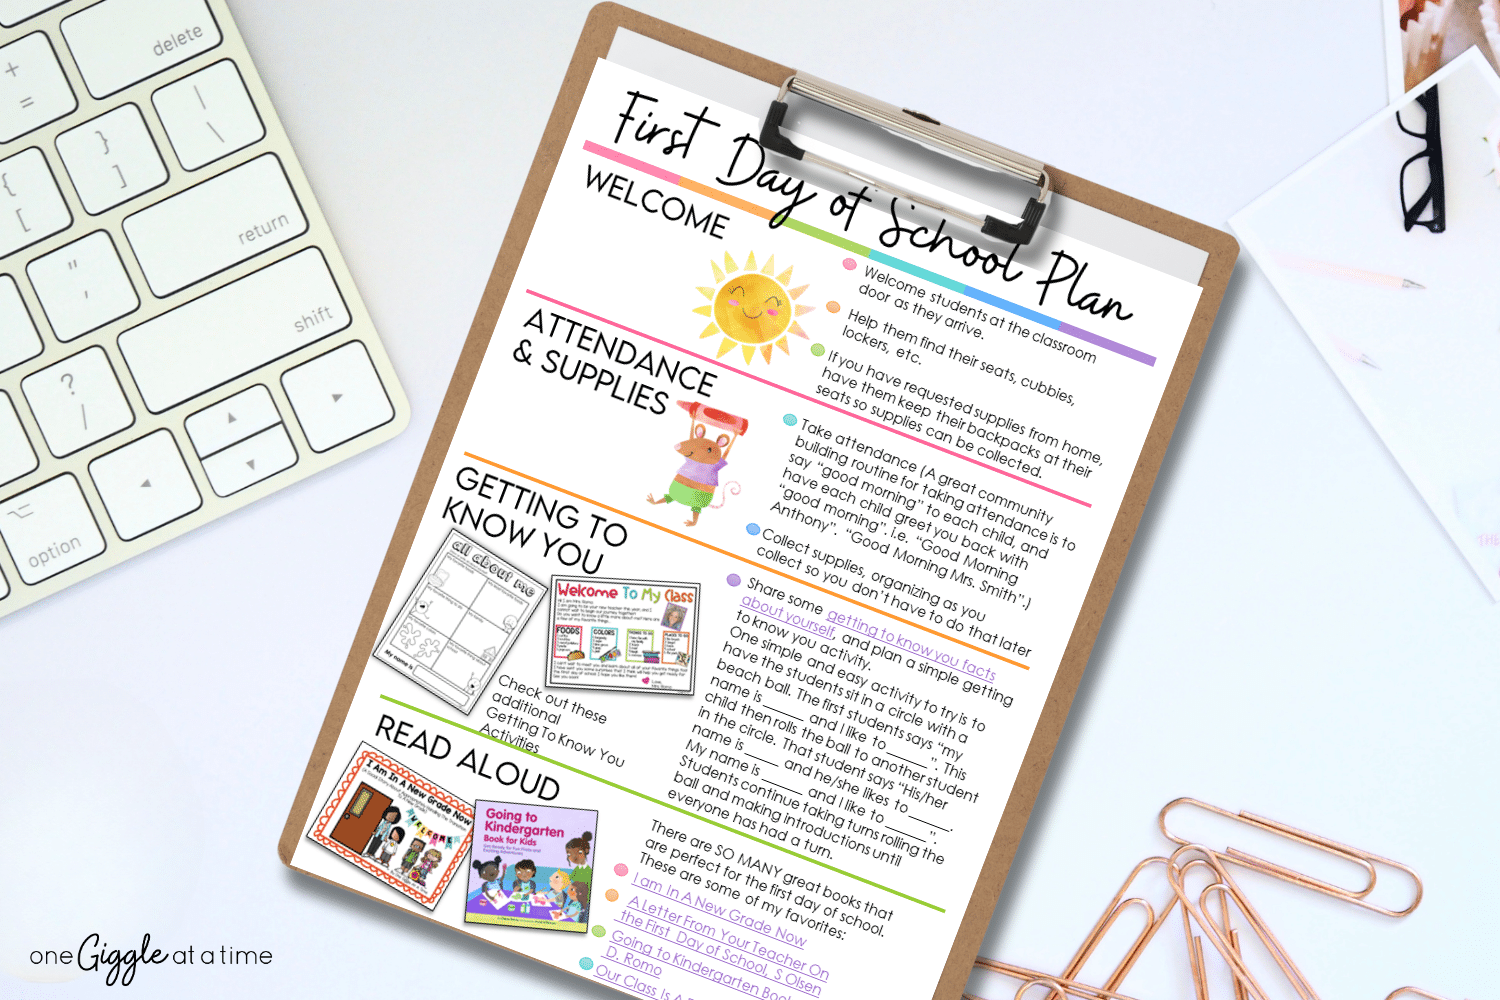 delete
+
=
|
\
}
]
{
[
return
"
,
shift
?
/
option
First Day of School Plan
WELCOME
Welcome students at the classroom
door as they arrive.
Help them find their seats, cubbies,
lockers, etc.
If you have requested supplies from home,
have them keep their backpacks at their
seats so supplies can be collected.
ATTENDANCE
& SUPPLIES
Take attendance (A great community
building routine for taking attendance is to
say “good morning” to each child, and
have each child greet you back with
“good morning”. i.e. “Good Morning
Anthony”. “Good Morning Mrs. Smith”.)
Collect supplies, organizing as you
collect so you don’t have to do that later
GETTING TO
KNOW YOU
all about me
My name is
Welcome To My Class
FOODS
COLORS
Check out these
additional
Getting To Know You
Activities
Share some getting to know you facts
about yourself, and plan a simple getting
to know you activity.
One simple and easy activity to try is to
have the students sit in a circle with a
beach ball. The first students says “my
name is_____ and I like to_____”. This
child then rolls the ball to another student
in the circle. That student says “His/her
name is_____ and he/she likes to_____.
My name is_____ and I like to_____”.
Students continue taking turns rolling the
ball and making introductions until
everyone has had a turn.
READ ALOUD
I Am In A New Grade Now
WELCOME
Going to
Kindergarten
Book for Kids
There are SO MANY great books that
are perfect for the first day of school.
These are some of my favorites:
I am In A New Grade Now
A Letter From Your Teacher On
the First Day of School, S Olsen
Going to Kindergarten Book
D. Romo
Our Class Is A
one Giggle at a time